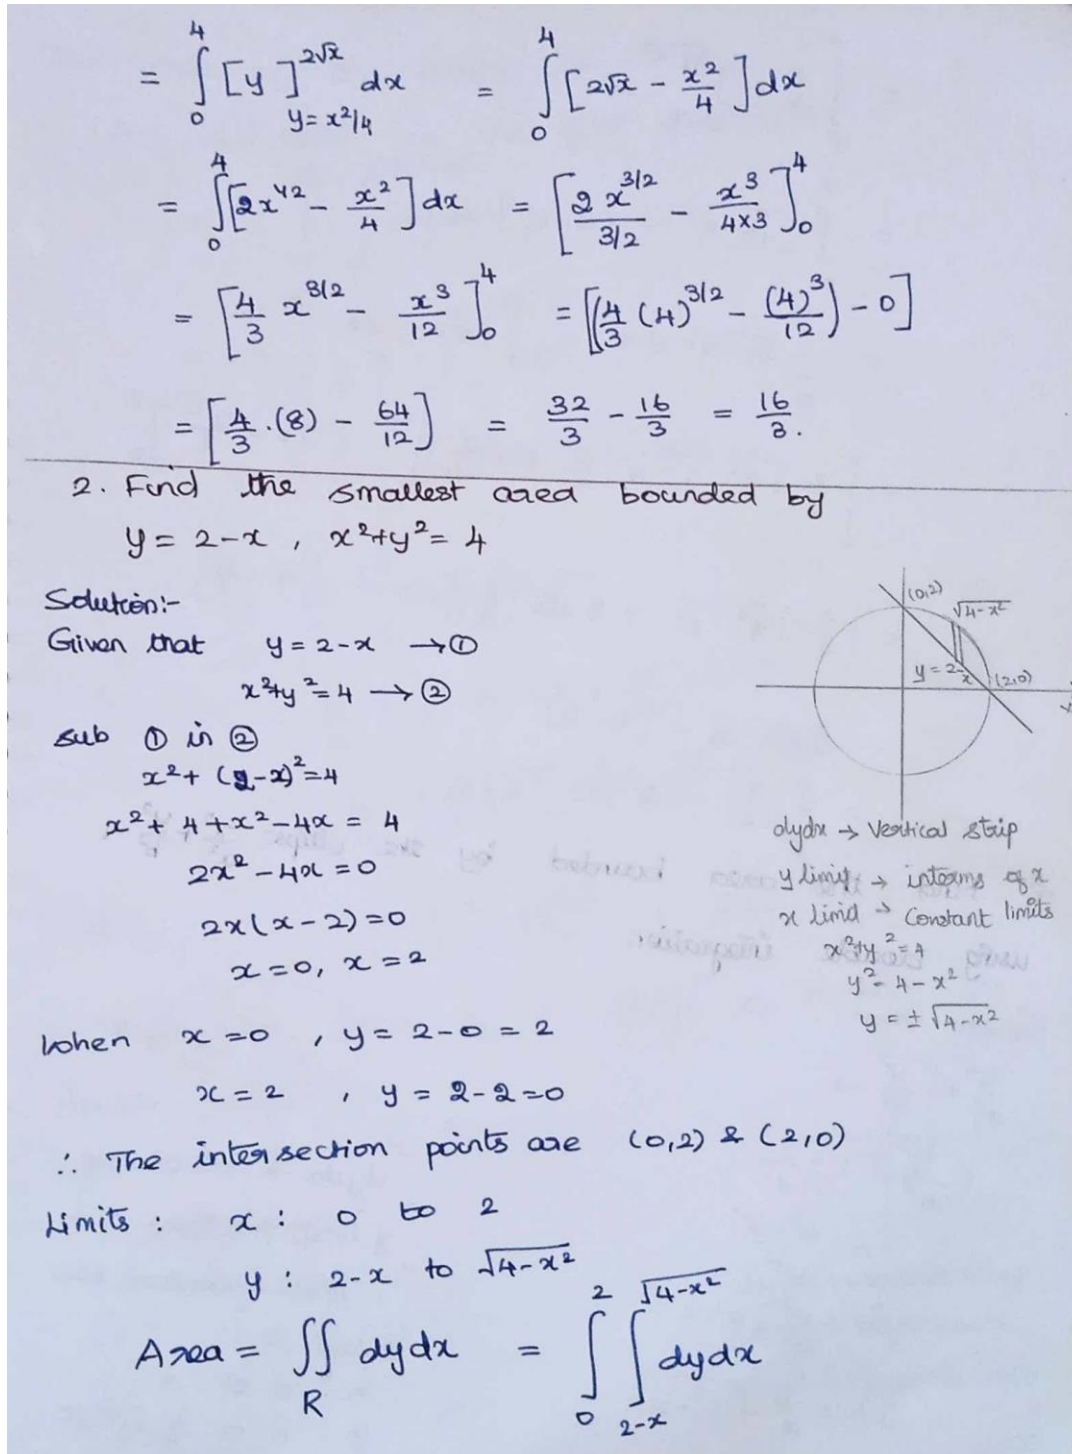 = ∫₀⁴ [y]^{2√x}_{y=x²/4} dx = ∫₀⁴ [2√x - x²/4] dx
= ∫₀⁴ [2x^{1/2} - x²/4] dx = [2x^{3/2}/(3/2) - x³/(4×3)]₀⁴
= [4/3 x^{3/2} - x³/12]₀⁴ = [(4/3 (4)^{3/2} - (4)³/12) - 0]
= [4/3 . (8) - 64/12] = 32/3 - 16/3 = 16/3.
2. Find the smallest area bounded by
y = 2-x , x²+y² = 4
Solution:-
Given that y = 2-x → ①
x²+y² = 4 → ②
sub ① in ②
x² + (2-x)² = 4
x² + 4 + x² - 4x = 4
2x² - 4x = 0
2x(x-2) = 0
x = 0, x = 2
When x = 0 , y = 2-0 = 2
x = 2 , y = 2-2 = 0
∴ The intersection points are (0,2) & (2,0)
Limits : x : 0 to 2
y : 2-x to √4-x²
Area = ∬_R dydx = ∫₀² ∫_{2-x}^{√4-x²} dydx
(0,2)
√4-x²
y = 2-x
(2,0)
x
dydx → Vertical strip
y limit → interms of x
x limit → Constant limits
x²+y² = 4
y² = 4-x²
y = ± √4-x²